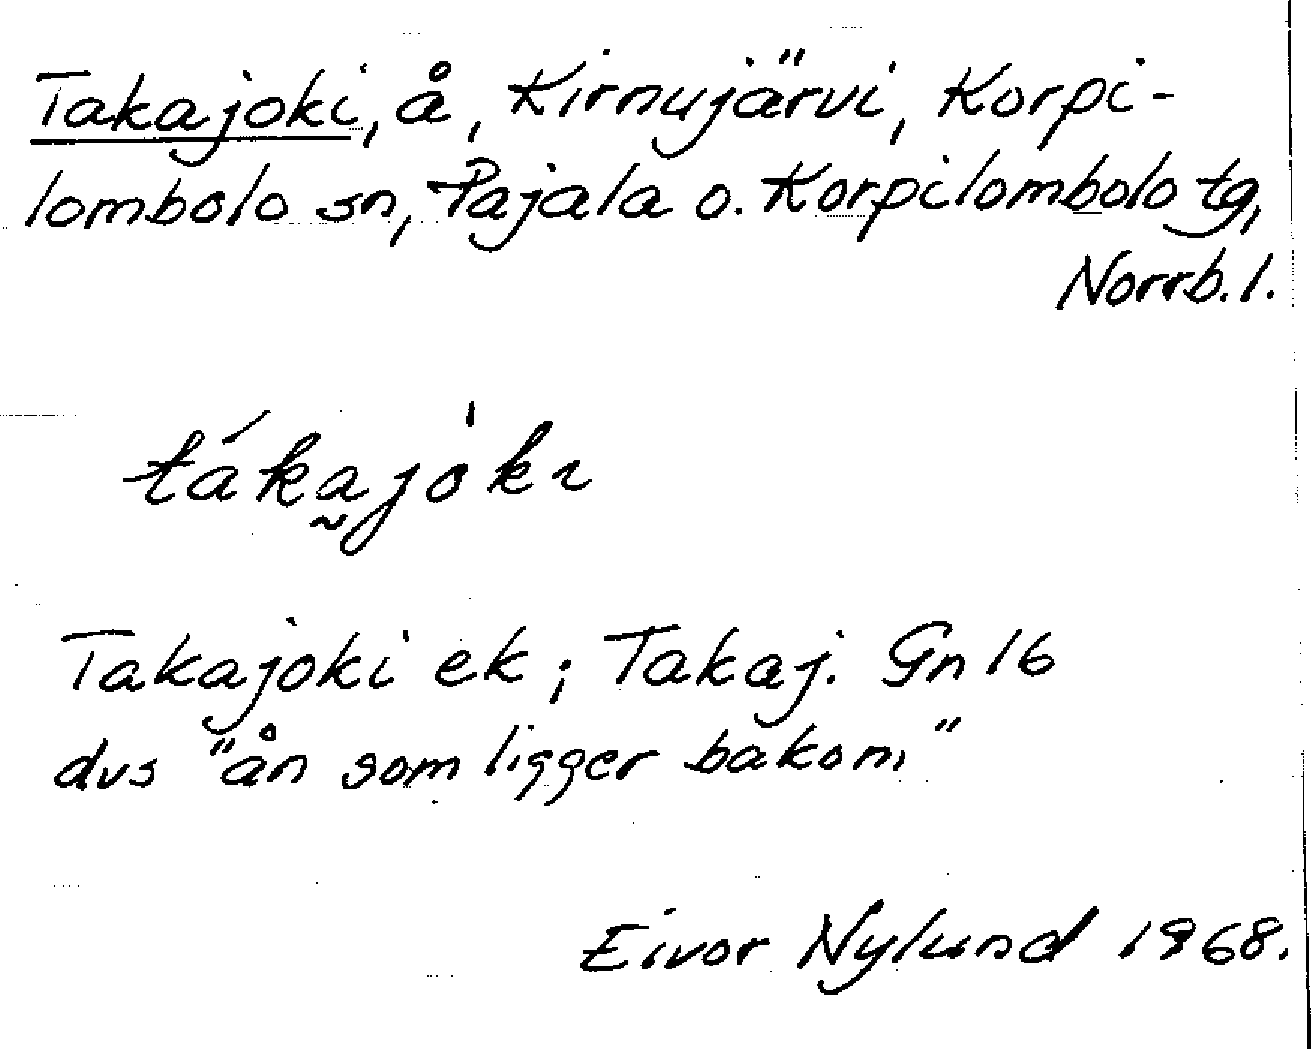 Takajoki, å, Kirnujärvi, Korpi-
lombolo sn, Pajala o. Korpilombolo tg,
Norrb. l.
táka̰jòkɩ
Takajoki ek; Takaj. Gn 16
dvs "ån som ligger bakom"
Eivor Nylund 1968.